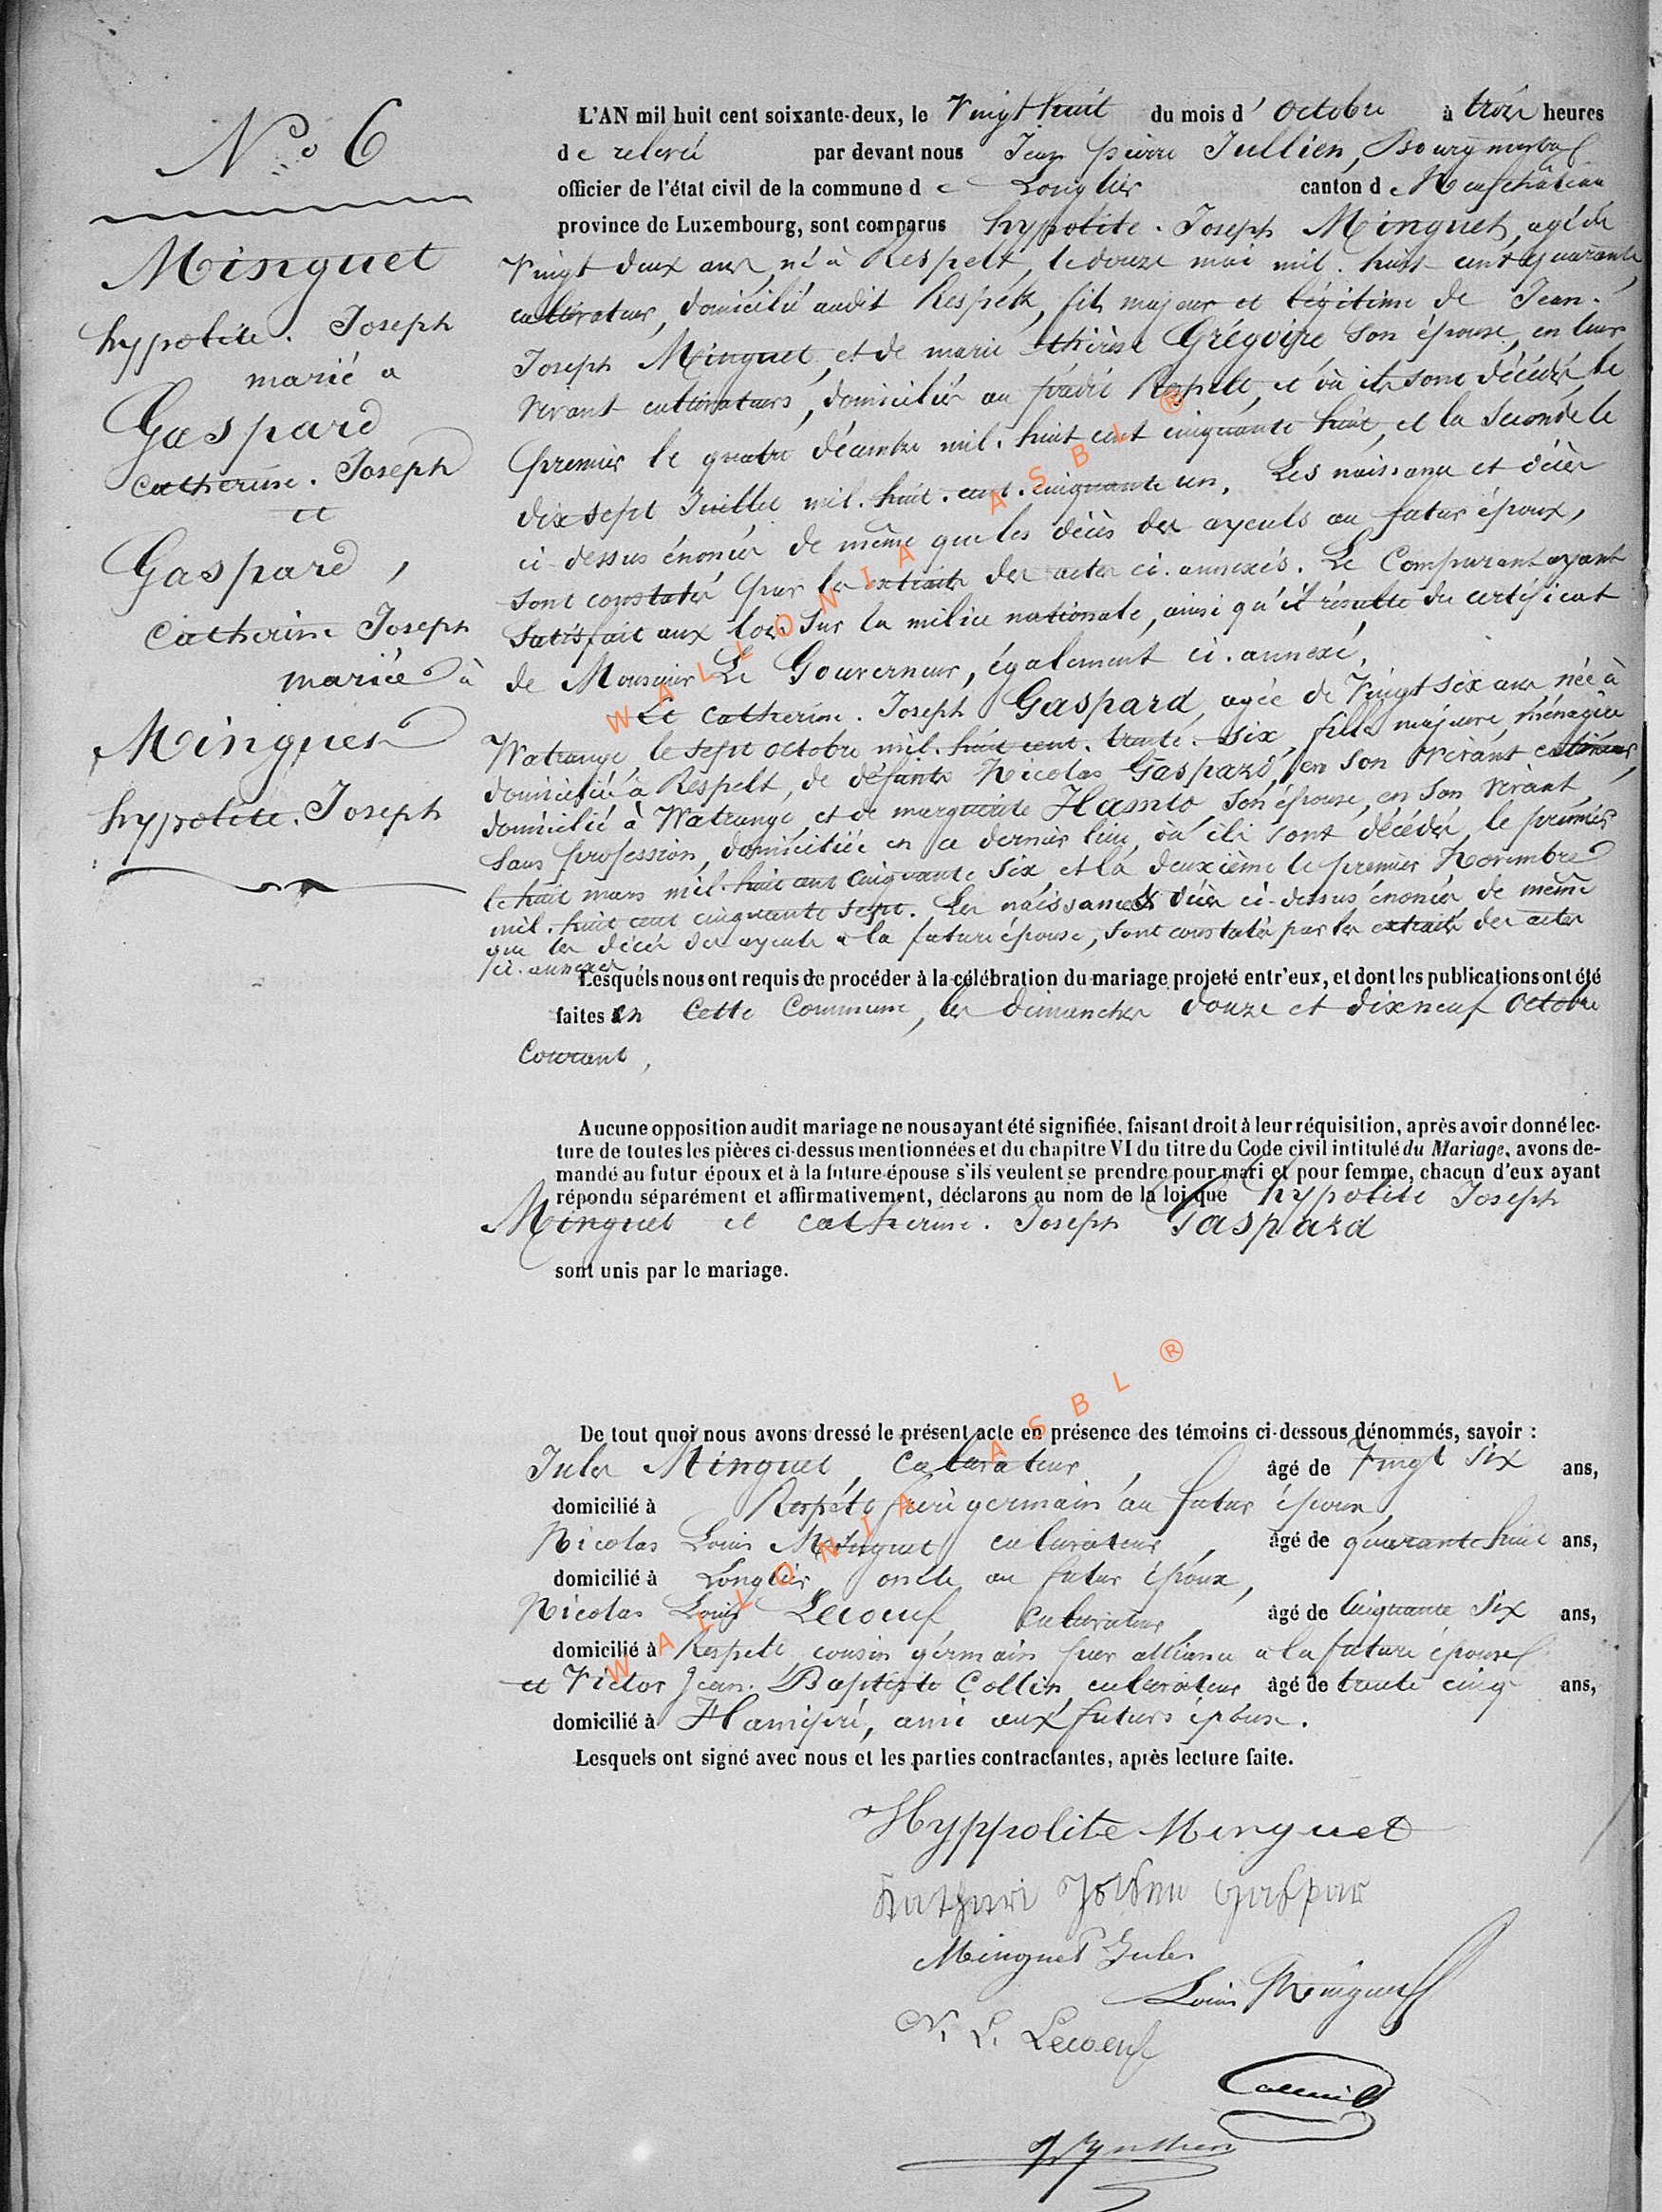 N° 6
Minguet
hypolite. Joseph
marié a
Gaspard
Catherine. Joseph
et
Gaspard,
Catherine Joseph
mariée à
Minguet
hypolite. Joseph
L'AN mil huit cent soixante-deux, le Vingt huit du mois d' octobre à trois heures
de relevée par devant nous Jean pierre Jullien, Bourgmestre
officier de l'état civil de la commune de Longlier canton de Neufchâteau
province de Luxembourg, sont comparus hypolite. Joseph Minguet, agé de
Vingt deux ans, né à Respelt, le douze mai mil. huit cent quarante,
cultivateur, domicilié audit Respelt, fils majeur et légitime de Jean.
Joseph Minguet, et de marie thérèse Grégoire son épouse, en leur
vivant cultivateurs, domiciliés au prédit Respelt, et où ils sont décédés, le
premier le quatre décembre mil. huit cent cinquante huit, et la seconde le
dix sept Juillet mil. huit. cent. cinquante un. Les naissance et décès
ci-dessus énoncés de même que les décès des ayeuls au futur époux,
sont constatés par les extraits des actes ci. annexés. Le Comparant ayant
satisfait aux lois sur la milice nationale, ainsi qu'il résulte du certificat
de Monsieur Le Gouverneur, également ci. annexé,
Et Catherine. Joseph Gaspard, agée de Vingt six ans, née à
Watrange, le sept octobre mil. huit cent. trente. six, fille majeure, ménagère
domiciliée à Respelt, de défunts Nicolas Gaspard, en son vivant cultivateur,
domicilié à Watrange, et de marguerite Hamto, son épouse, en son vivant,
sans profession, domiciliée en ce dernier lieu, où ils sont décédés, le premier
le huit mars mil. huit cent cinquante six et la deuxième le premier Novembre
mil. huit cent cinquante sept. Les naissance & décès ci-dessus énoncés de même
que les décès des ayeuls a la future épouse, sont constatés par les extraits des actes
ci. annexés
Lesquels nous ont requis de procéder à la célébration du mariage projeté entr'eux, et dont les publications ont été
faites en cette Commune, les dimanches douze et dix neuf octobre
Courant,
Aucune opposition audit mariage ne nous ayant été signifiée, faisant droit à leur réquisition, après avoir donné lec-
ture de toutes les pièces ci-dessus mentionnées et du chapitre VI du titre du Code civil intitulé du Mariage, avons de-
mandé au futur époux et à la future épouse s'ils veulent se prendre pour mari et pour femme, chacun d'eux ayant
répondu séparément et affirmativement, déclarons au nom de la loi que hypolite Joseph
Minguet et catherine. Joseph Gaspard
sont unis par le mariage.
De tout quoi nous avons dressé le présent acte en présence des témoins ci-dessous dénommés, savoir :
Jules Minguet, Cultivateur, âgé de Vingt six ans,
domicilié à Respelt, frère germain au futur époux,
Nicolas Louis Minguet, cultivateur, âgé de quarante huit ans,
domicilié à Longlier, oncle au futur époux,
Nicolas Louis Lecoeuf, cultivateur, âgé de Cinquante six ans,
domicilié à Respelt, cousin germain par alliance a la future épouse
et Victor Jean. Baptiste Collin, cultivateur âgé de trente cinq ans,
domicilié à Hamipré, ami aux futurs époux.
Lesquels ont signé avec nous et les parties contractantes, après lecture faite.
Hyppolite Minguet
Minguet Jules
Louis Minguet
N. L. Lecoeuf
WALLONIA ASBL ®
WALLONIA ASBL ®